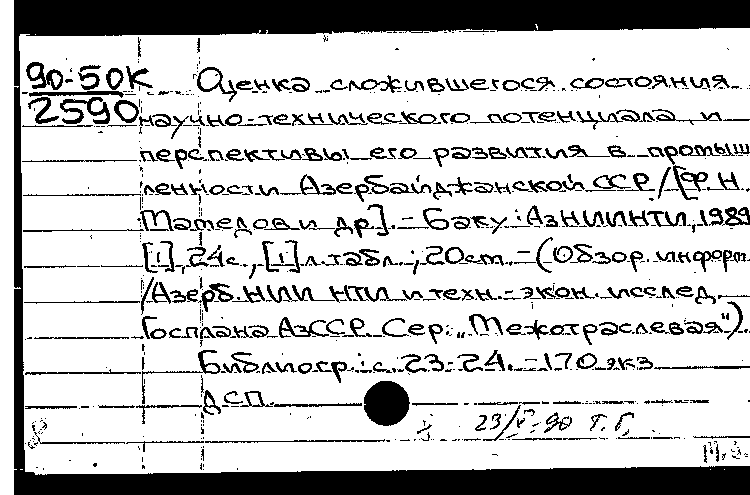 90-50К Оценка сложившегося состояния
2590 научно-технического потенциала и
перспективы его развития в промыш
ленности Азербайджанской ССР / [Ф.Н.
Мамедова и др.]. - Баку : АзНИИНТИ, 1989
[1], 24с., [1] л. табл. ; 20см. - (Обзор. информ.
/Азерб. НИИ НТИ и техн.-экон. исслед.
Госплана АзССР. Сер.: "Межотраслевая")
Библиогр.: с. 23-24. - 170 экз
ДСП.
23/V-90 Т.Г.